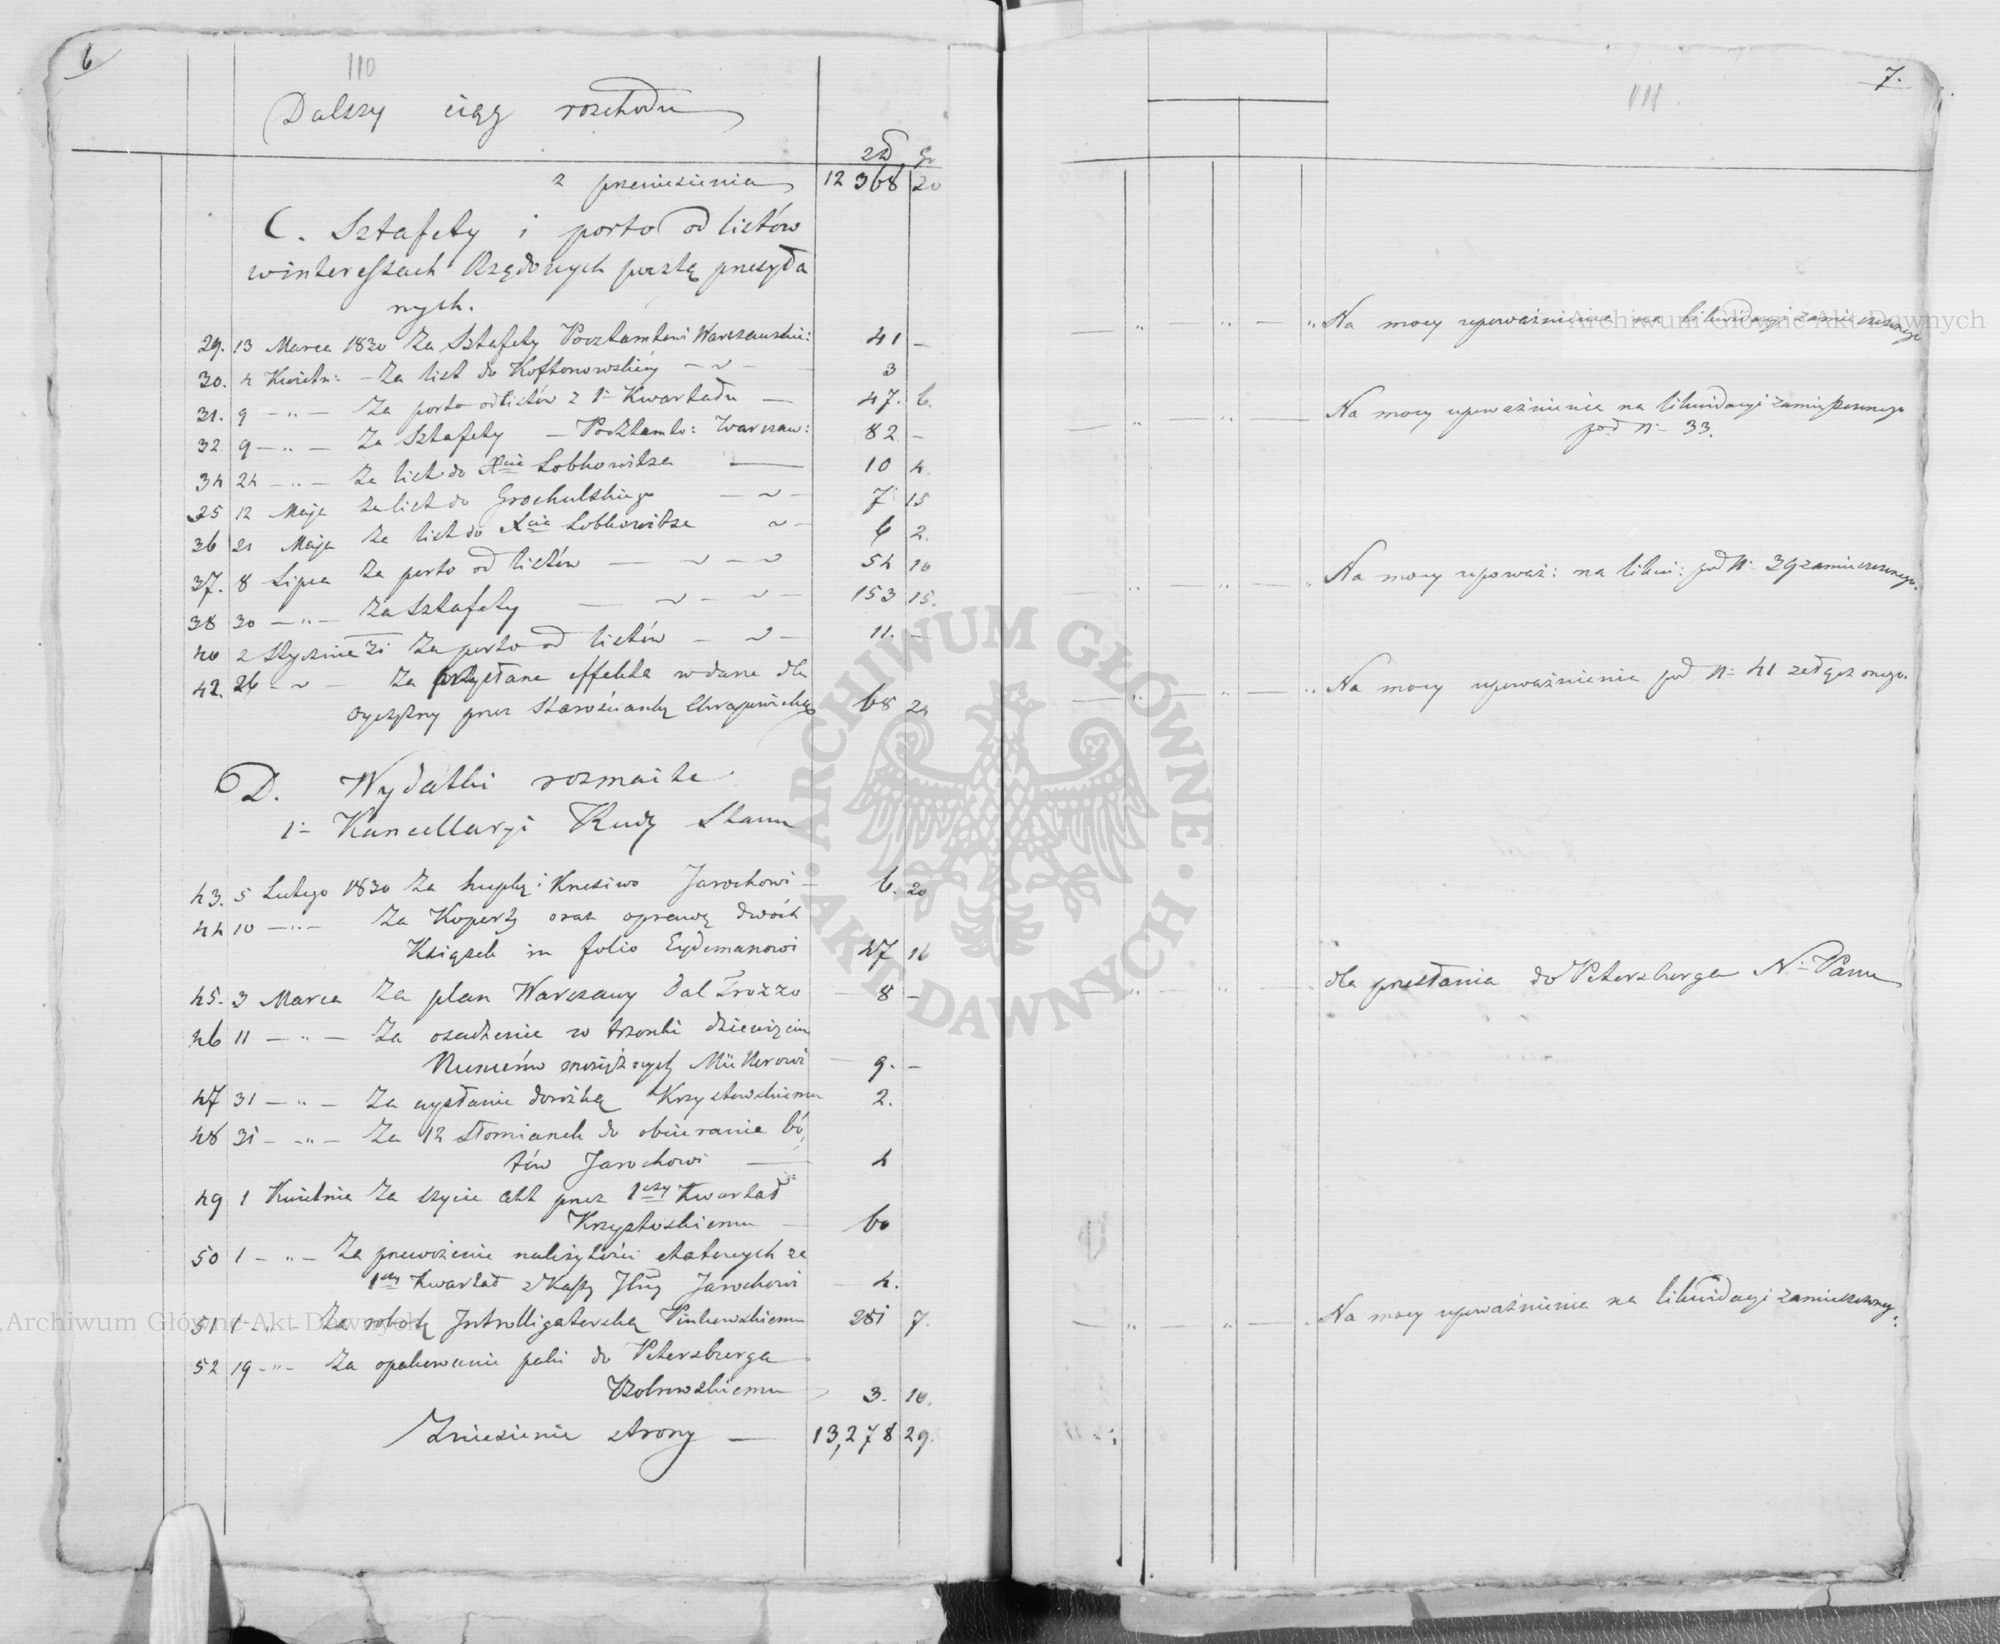 6
110
Dalszy ciąg rozchodu
zł gr
z przeniesienia 12 368 20
C. Sztafety i porto od listów
w interessach Rządowych pocztą przesyła
nych.
29. 13 Marca 1830 Za Sztafety Pocztamtowi Warszawskie: 41 —
30. 4 Kwietn: — Za list do Koftonowskiéy — 3
31. 9 — „ — Za porto od listów z 1o Kwartału — 47. 6.
32 9 — „ — Za Sztafety — Pocztamto: Warszaw: 82 —
34 24 — „ — Za list do Xcia Lobkowitza — 10 4.
35 12 Maja Za list do Grochulskiego — 7 15
36 21 Maja Za list do Xcia Lobkowitza 6 2.
37. 8 Lipca Za porto od listów — 54 10
38 30 — „ — Za Sztafety — 153 15.
40 2 Stycznia 31 Za porto od listów — 11. —
42. 26 — „ — Za przysłane effekta wdane dla
oyczyzny przez Starościankę Chrapowicką 68 24
D. Wydatki rozmaite
1o Kancellaryi Rady Stanu
43. 5 Lutego 1830 Za hupkę i Krzesiwo Jarochowi — 6. 20
44 10 — „ — Za Koperty oraz oprawę dwóch
Książek in folio Eydemanowi 47 16
45. 3 Marca Za plan Warszawy Dal Trozzo — 8 —
46 11 — „ — Za osadzenie w trzonki dziewięciu
Numerów mosiężnych Müllerowi — 9. —
47 31 — „ — Za wysłanie dorożką Krzystowskiemu 2.
48 31 — „ — Za 12 słomianek do obcierania bó
tów Jarochowi — 4
49 1 Kwietnia Za szycie akt przez 1szy Kwartał
Krzystoskiemu — 60
50 1 — „ — Za przewożenie należytości etatowych za
1szy Kwartał z Kassy Głnéy Jarochowi — 4.
51 1 — „ — Za robotę Introlligatorską Pinkowskiemu 281 7.
52 19 — „ — Za opakowanie paki do Petersburga
3. 10.
Zniesienie strony — 13,278 29.
7.
111
Na mocy upoważnienia na likwidacyi zamieszczonego
Na mocy upoważnienia na likwidacyi zamieszczonego
pod No 33.
Na mocy upoważ: na likwi: pod No 39 zamieszczonego.
Na mocy upoważnienia pod No 41 załączonego.
dla przesłania do Petersburga N. Panu
Na mocy upoważnienia na likwidacyi zamieszczonego.
Archiwum Główne Akt Dawnych
Archiwum Główne Akt Dawnych
ARCHIWUM GŁÓWNE · AKT DAWNYCH ·